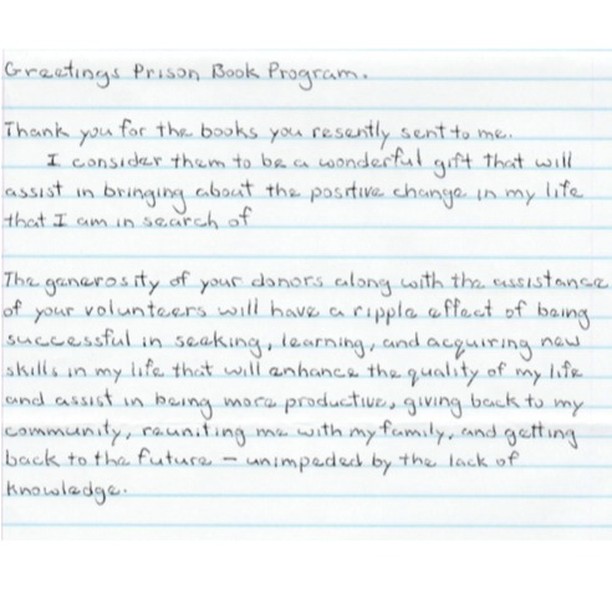 Greetings Prison Book Program.
Thank you for the books you resently sent to me.
I consider them to be a wonderful gift that will
assist in bringing about the positive change in my life
that I am in search of
The generosity of your donors along with the assistance
of your volunteers will have a ripple effect of being
successful in seeking, learning, and acquiring new
skills in my life that will enhance the quality of my life
and assist in being more productive, giving back to my
community, reuniting me with my family, and getting
back to the future - unimpeded by the lack of
knowledge.